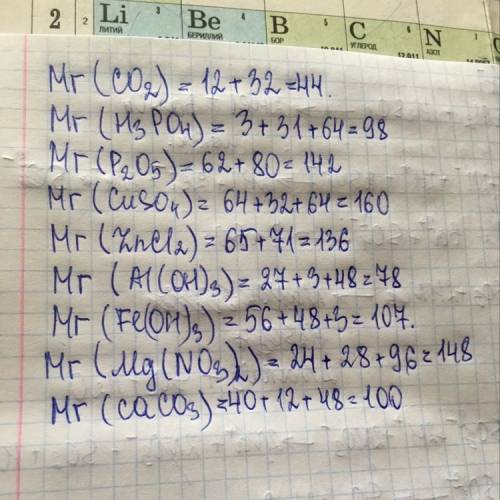 2 2 Li 3 Be 4 B 5 C 6 N
ЛИТИЙ БЕРИЛЛИЙ БОР УГЛЕРОД АЗОТ
Mr (CO2) = 12 + 32 = 44.
Mr (H3PO4) = 3 + 31 + 64 = 98
Mr (P2O5) = 62 + 80 = 142
Mr (CuSO4) = 64 + 32 + 64 = 160
Mr (ZnCl2) = 65 + 71 = 136
Mr (Al(OH)3) = 27 + 3 + 48 = 78
Mr (Fe(OH)3) = 56 + 48 + 3 = 107.
Mr (Mg(NO3)2) = 24 + 28 + 96 = 148
Mr (CaCO3) = 40 + 12 + 48 = 100